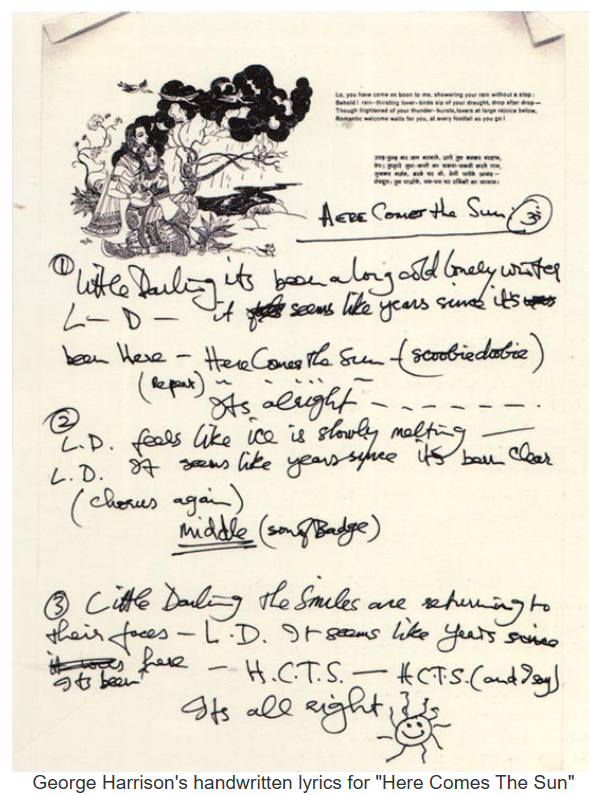 Lo, you have come as boon to me, showering your rain without a stop:
Behold! rain-thirsting lover-birds sip of your draught, drop after drop—
Though frightened of your thunder-bursts, lovers at large rejoice below,
Romantic welcome waits for you, at every footfall as you go!
HERE Comes the Sun ॐ
① Little Darling its been a long cold lonely winter
L — D — it seems like years since its
been Here — Here Comes the Sun — (scoobiedoobie)
(Repeat)
Its alright — — — — — —
② L.D. feels like ice is slowly melting —
L.D. It seems like years since its been clear
(chorus again)
middle (son of Badge)
③ Little Darling the Smiles are returning to
their faces — L.D. It seems like years since
it was here — H.C.T.S. — H.C.T.S. (and I say)
Its been
Its all right
George Harrison's handwritten lyrics for "Here Comes The Sun"